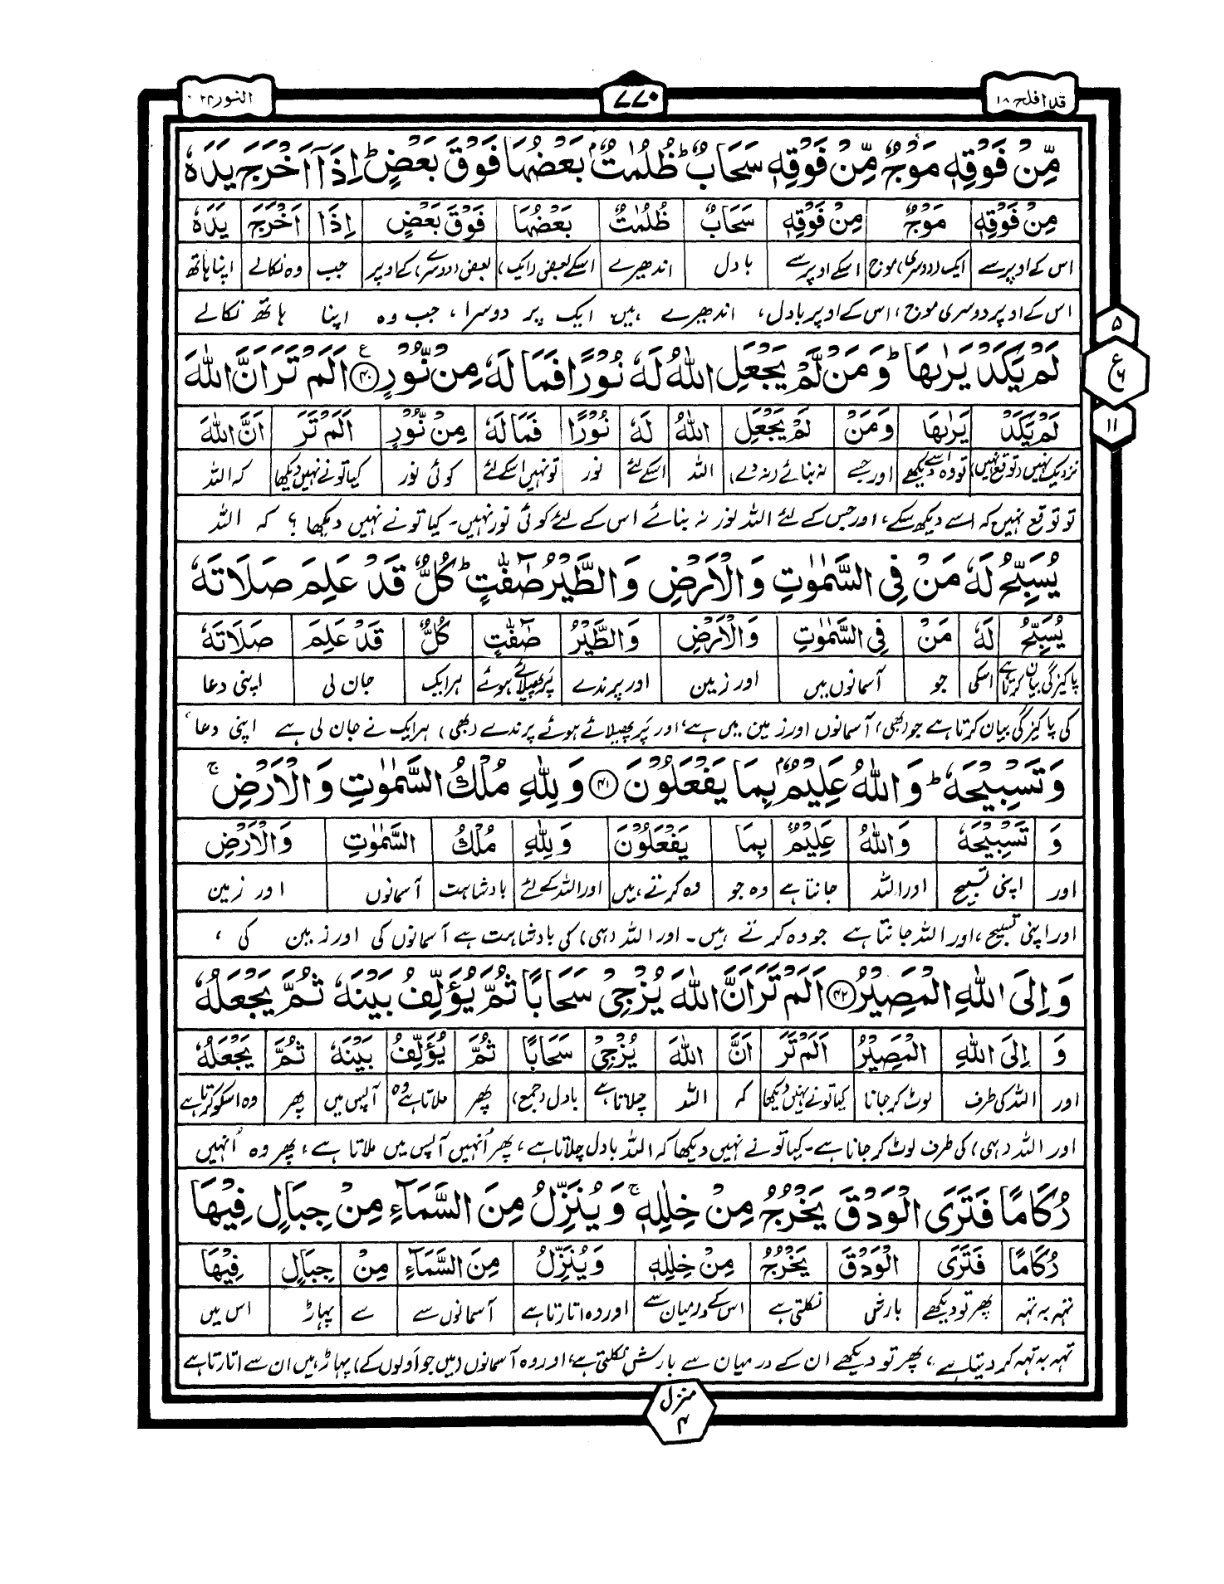 قد افلح ۱۸
۷۷۰
النور ۲۴
مِّنْ فَوْقِهٖ مَوْجٌ مِّنْ فَوْقِهٖ سَحَابٌ ؕ ظُلُمٰتٌۢ بَعْضُهَا فَوْقَ بَعْضٍ ؕ اِذَاۤ اَخْرَجَ يَدَهٗ
مِنْ فَوْقِهٖ مَوْجٌ مِنْ فَوْقِهٖ سَحَابٌ ظُلُمٰتٌ بَعْضُهَا فَوْقَ بَعْضٍ اِذَا اَخْرَجَ يَدَهٗ
اس کے اوپر سے ایک (دوسری) موج اسکے اوپر سے بادل اندھیرے اسکے بعض (ایک) بعض (دوسرے) کے اوپر جب وہ نکالے اپنا ہاتھ
اس کے اوپر دوسری موج، اس کے اوپر بادل، اندھیرے ہیں ایک پر دوسرا، جب وہ اپنا ہاتھ نکالے
لَمْ يَكَدْ يَرٰىهَا ؕ وَ مَنْ لَّمْ يَجْعَلِ اللّٰهُ لَهٗ نُوْرًا فَمَا لَهٗ مِنْ نُّوْرٍ ۴۰ اَلَمْ تَرَ اَنَّ اللّٰهَ
لَمْ يَكَدْ يَرٰىهَا وَمَنْ لَمْ يَجْعَلِ اللّٰهُ لَهٗ نُوْرًا فَمَا لَهٗ مِنْ نُّوْرٍ اَلَمْ تَرَ اَنَّ اللّٰهَ
نزدیک نہیں (توقع نہیں) تو وہ اسے دیکھے اور جسے نہ بنائے (نہ دے) اللہ اسکے لئے نور تو نہیں اسکے لئے کوئی نور کیا تو نے نہیں دیکھا کہ اللہ
تو توقع نہیں کہ اسے دیکھ سکے، اور جس کے لئے اللہ نور نہ بنائے اس کے لئے کوئی نور نہیں۔ کیا تو نے نہیں دیکھا؟ کہ اللہ
يُسَبِّحُ لَهٗ مَنْ فِى السَّمٰوٰتِ وَ الْاَرْضِ وَ الطَّيْرُ صٰٓفّٰتٍ ؕ كُلٌّ قَدْ عَلِمَ صَلَاتَهٗ
يُسَبِّحُ لَهٗ مَنْ فِى السَّمٰوٰتِ وَالْاَرْضِ وَالطَّيْرُ صٰٓفّٰتٍ كُلٌّ قَدْ عَلِمَ صَلَاتَهٗ
پاکیزگی بیان کرتا ہے اسکی جو آسمانوں میں اور زمین اور پرندے پر پھیلائے ہوئے ہر ایک جان لی اپنی دعا
کی پاکیزگی بیان کرتا ہے جو (بھی) آسمانوں اور زمین میں ہے، اور پر پھیلائے ہوئے پرندے (بھی)، ہر ایک نے جان لی ہے اپنی دعا،
وَ تَسْبِيْحَهٗ ؕ وَ اللّٰهُ عَلِيْمٌۢ بِمَا يَفْعَلُوْنَ ۴۱ وَ لِلّٰهِ مُلْكُ السَّمٰوٰتِ وَ الْاَرْضِ ۚ
وَ تَسْبِيْحَهٗ وَاللّٰهُ عَلِيْمٌ بِمَا يَفْعَلُوْنَ وَلِلّٰهِ مُلْكُ السَّمٰوٰتِ وَالْاَرْضِ
اور اپنی تسبیح اور اللہ جانتا ہے وہ جو وہ کرتے ہیں اور اللہ کے لئے بادشاہت آسمانوں اور زمین
اور اپنی تسبیح، اور اللہ جانتا ہے جو وہ کرتے ہیں۔ اور اللہ (ہی) کی بادشاہت ہے آسمانوں کی اور زمین کی،
وَ اِلَى اللّٰهِ الْمَصِيْرُ ۴۲ اَلَمْ تَرَ اَنَّ اللّٰهَ يُزْجِىْ سَحَابًا ثُمَّ يُؤَلِّفُ بَيْنَهٗ ثُمَّ يَجْعَلُهٗ
وَ اِلَى اللّٰهِ الْمَصِيْرُ اَلَمْ تَرَ اَنَّ اللّٰهَ يُزْجِىْ سَحَابًا ثُمَّ يُؤَلِّفُ بَيْنَهٗ ثُمَّ يَجْعَلُهٗ
اور اللہ کی طرف لوٹ کر جانا کیا تو نے نہیں دیکھا کہ اللہ چلاتا ہے بادل (جمع) پھر ملاتا ہے وہ آپس میں پھر وہ اسکو کرتا ہے
اور اللہ (ہی) کی طرف لوٹ کر جانا ہے۔ کیا تو نے نہیں دیکھا کہ اللہ بادل چلاتا ہے، پھر اُنہیں آپس میں ملاتا ہے، پھر وہ اُنہیں
رُكَامًا فَتَرَى الْوَدْقَ يَخْرُجُ مِنْ خِلٰلِهٖ ۚ وَ يُنَزِّلُ مِنَ السَّمَآءِ مِنْ جِبَالٍ فِيْهَا
رُكَامًا فَتَرَى الْوَدْقَ يَخْرُجُ مِنْ خِلٰلِهٖ وَيُنَزِّلُ مِنَ السَّمَآءِ مِنْ جِبَالٍ فِيْهَا
تہہ بہ تہہ پھر تو دیکھے بارش نکلتی ہے اس کے درمیان سے اور وہ اتارتا ہے آسمانوں سے سے پہاڑ اس میں
تہہ بہ تہہ کر دیتا ہے، پھر تو دیکھے ان کے درمیان سے بارش نکلتی ہے، اور وہ آسمانوں (میں جو اولوں کے) پہاڑ ہیں ان سے اتارتا ہے
۵
ع
۶
۱۱
منزل
۴